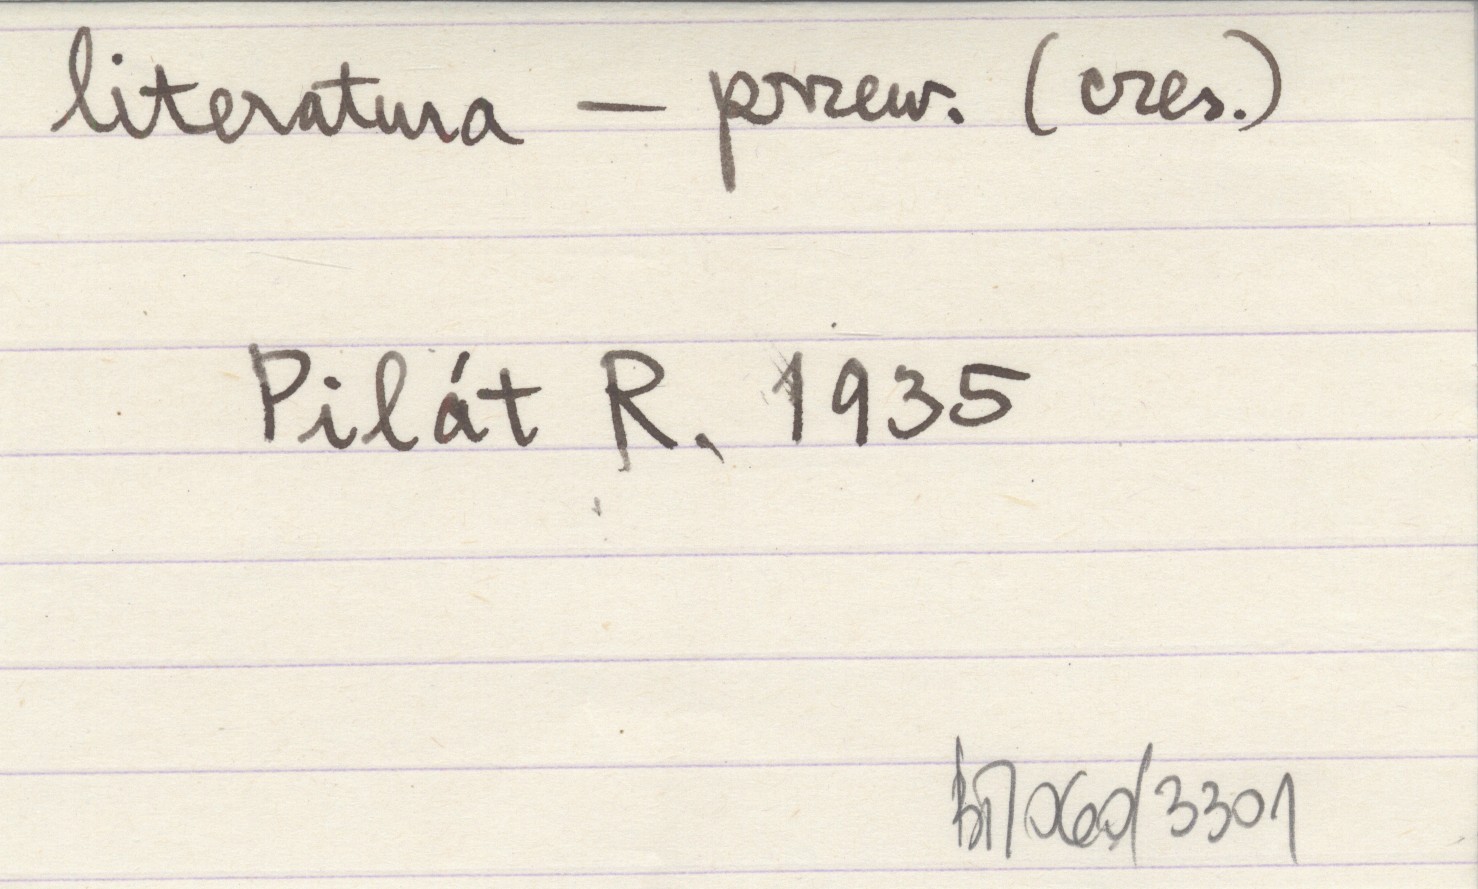 literatura — przew. (czes.)
Pilát R. 1935
060/3301